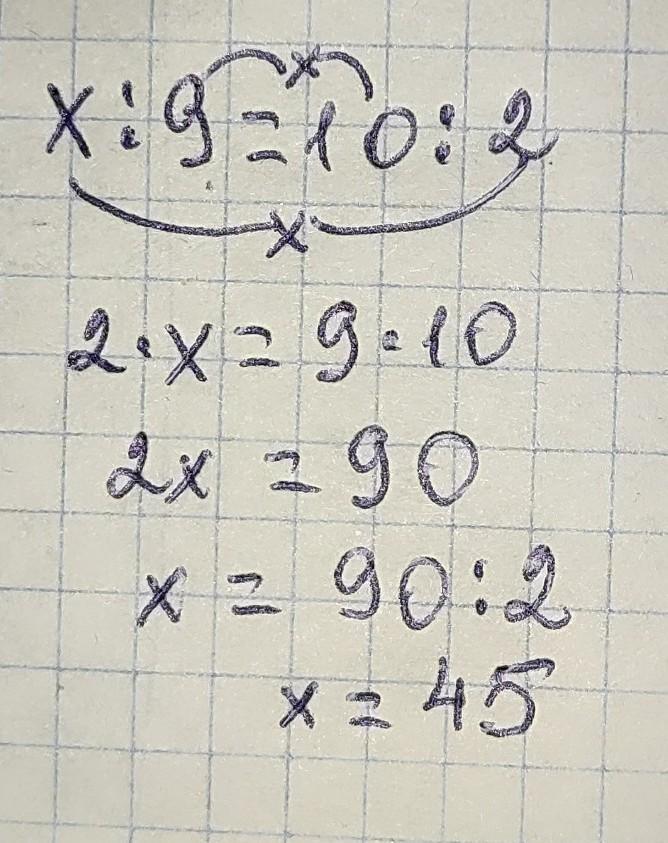 x
x:9=10:2
x
2·x=9·10
2x=90
x=90:2
x=45